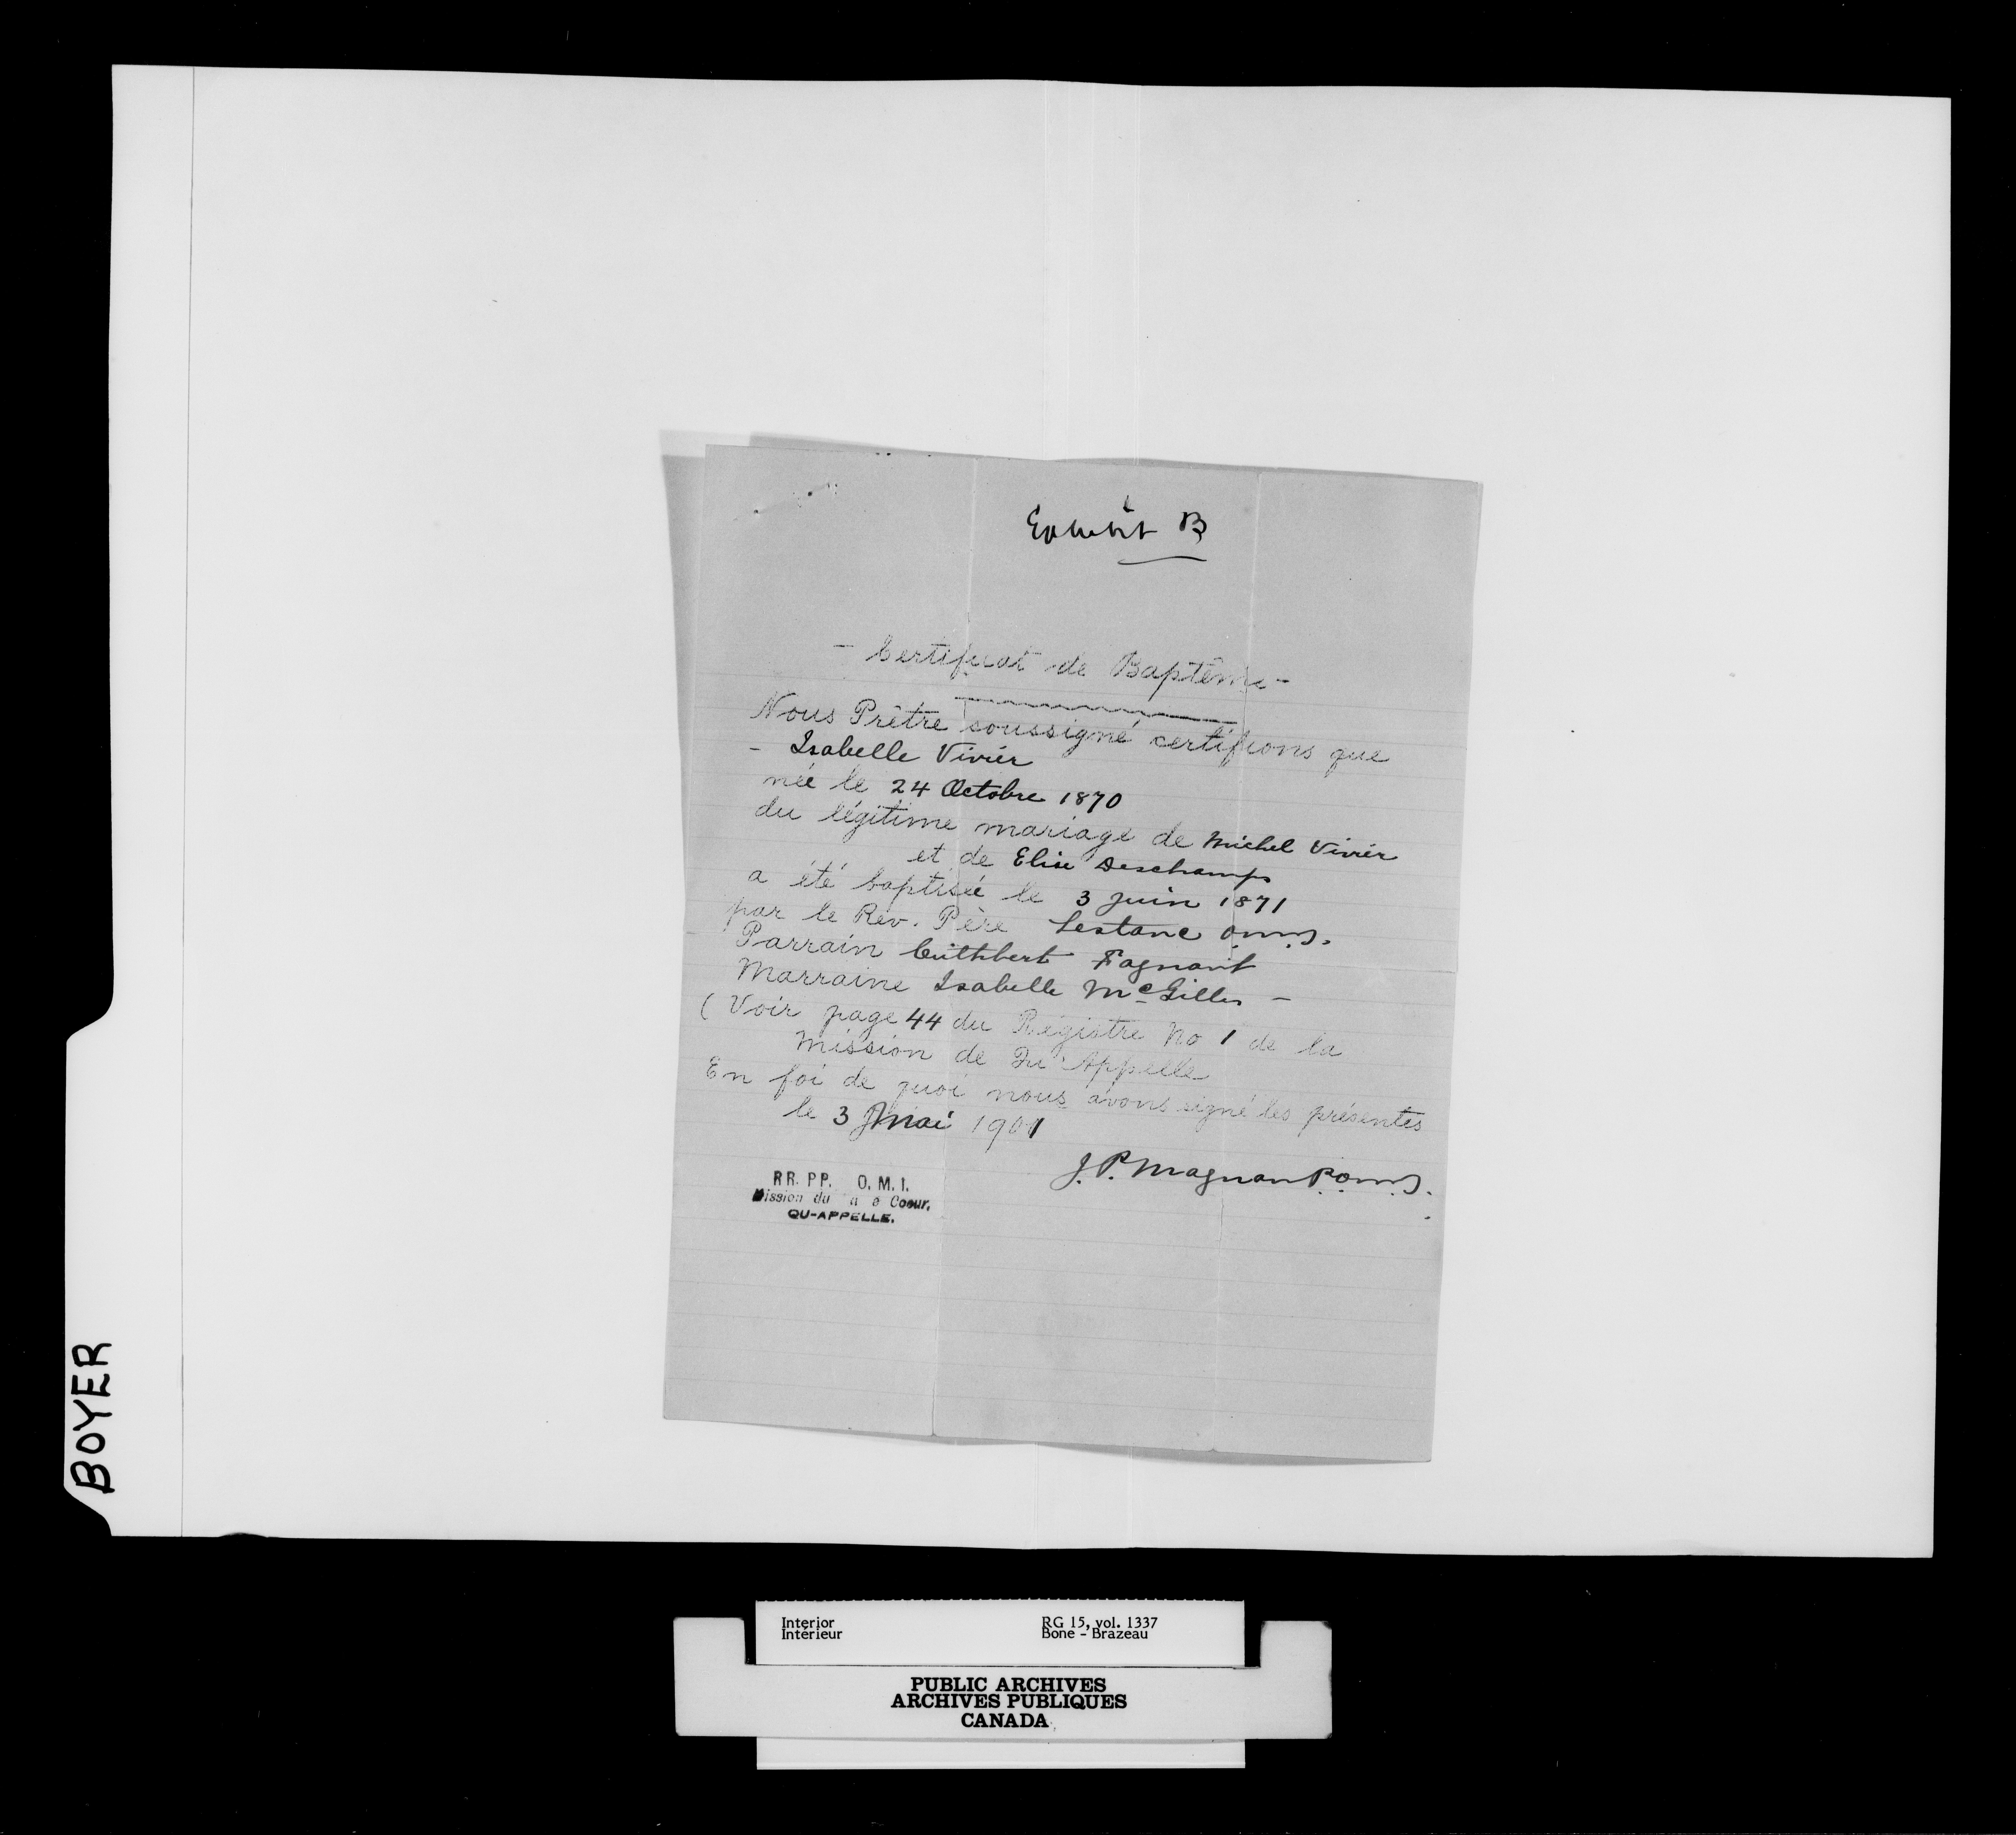 Exhibit B
- Certificat de Baptême -
Nous Prêtre soussigné certifions que
- Isabelle Vivier
née le 24 Octobre 1870
du légitime mariage de Michel Vivier
et de Elise Deschamps
a été baptisée le 3 Juin 1871
par le Rév. Père Lestanc O.M.I.
Parrain Cuthbert Fagnant
Marraine Isabelle McGilles -
(Voir page 44 du Régistre No 1 de la
Mission de Qu'Appelle
En foi de quoi nous avons signé les présentes
le 3 Mai 1901
J. P. Magnan P. O.M.I.
RR. PP. O. M. I.
Mission du a é Coeur,
QU-APPELLE.
BOYER
Interior
Intérieur
RG 15, vol. 1337
Bone - Brazeau
PUBLIC ARCHIVES
ARCHIVES PUBLIQUES
CANADA